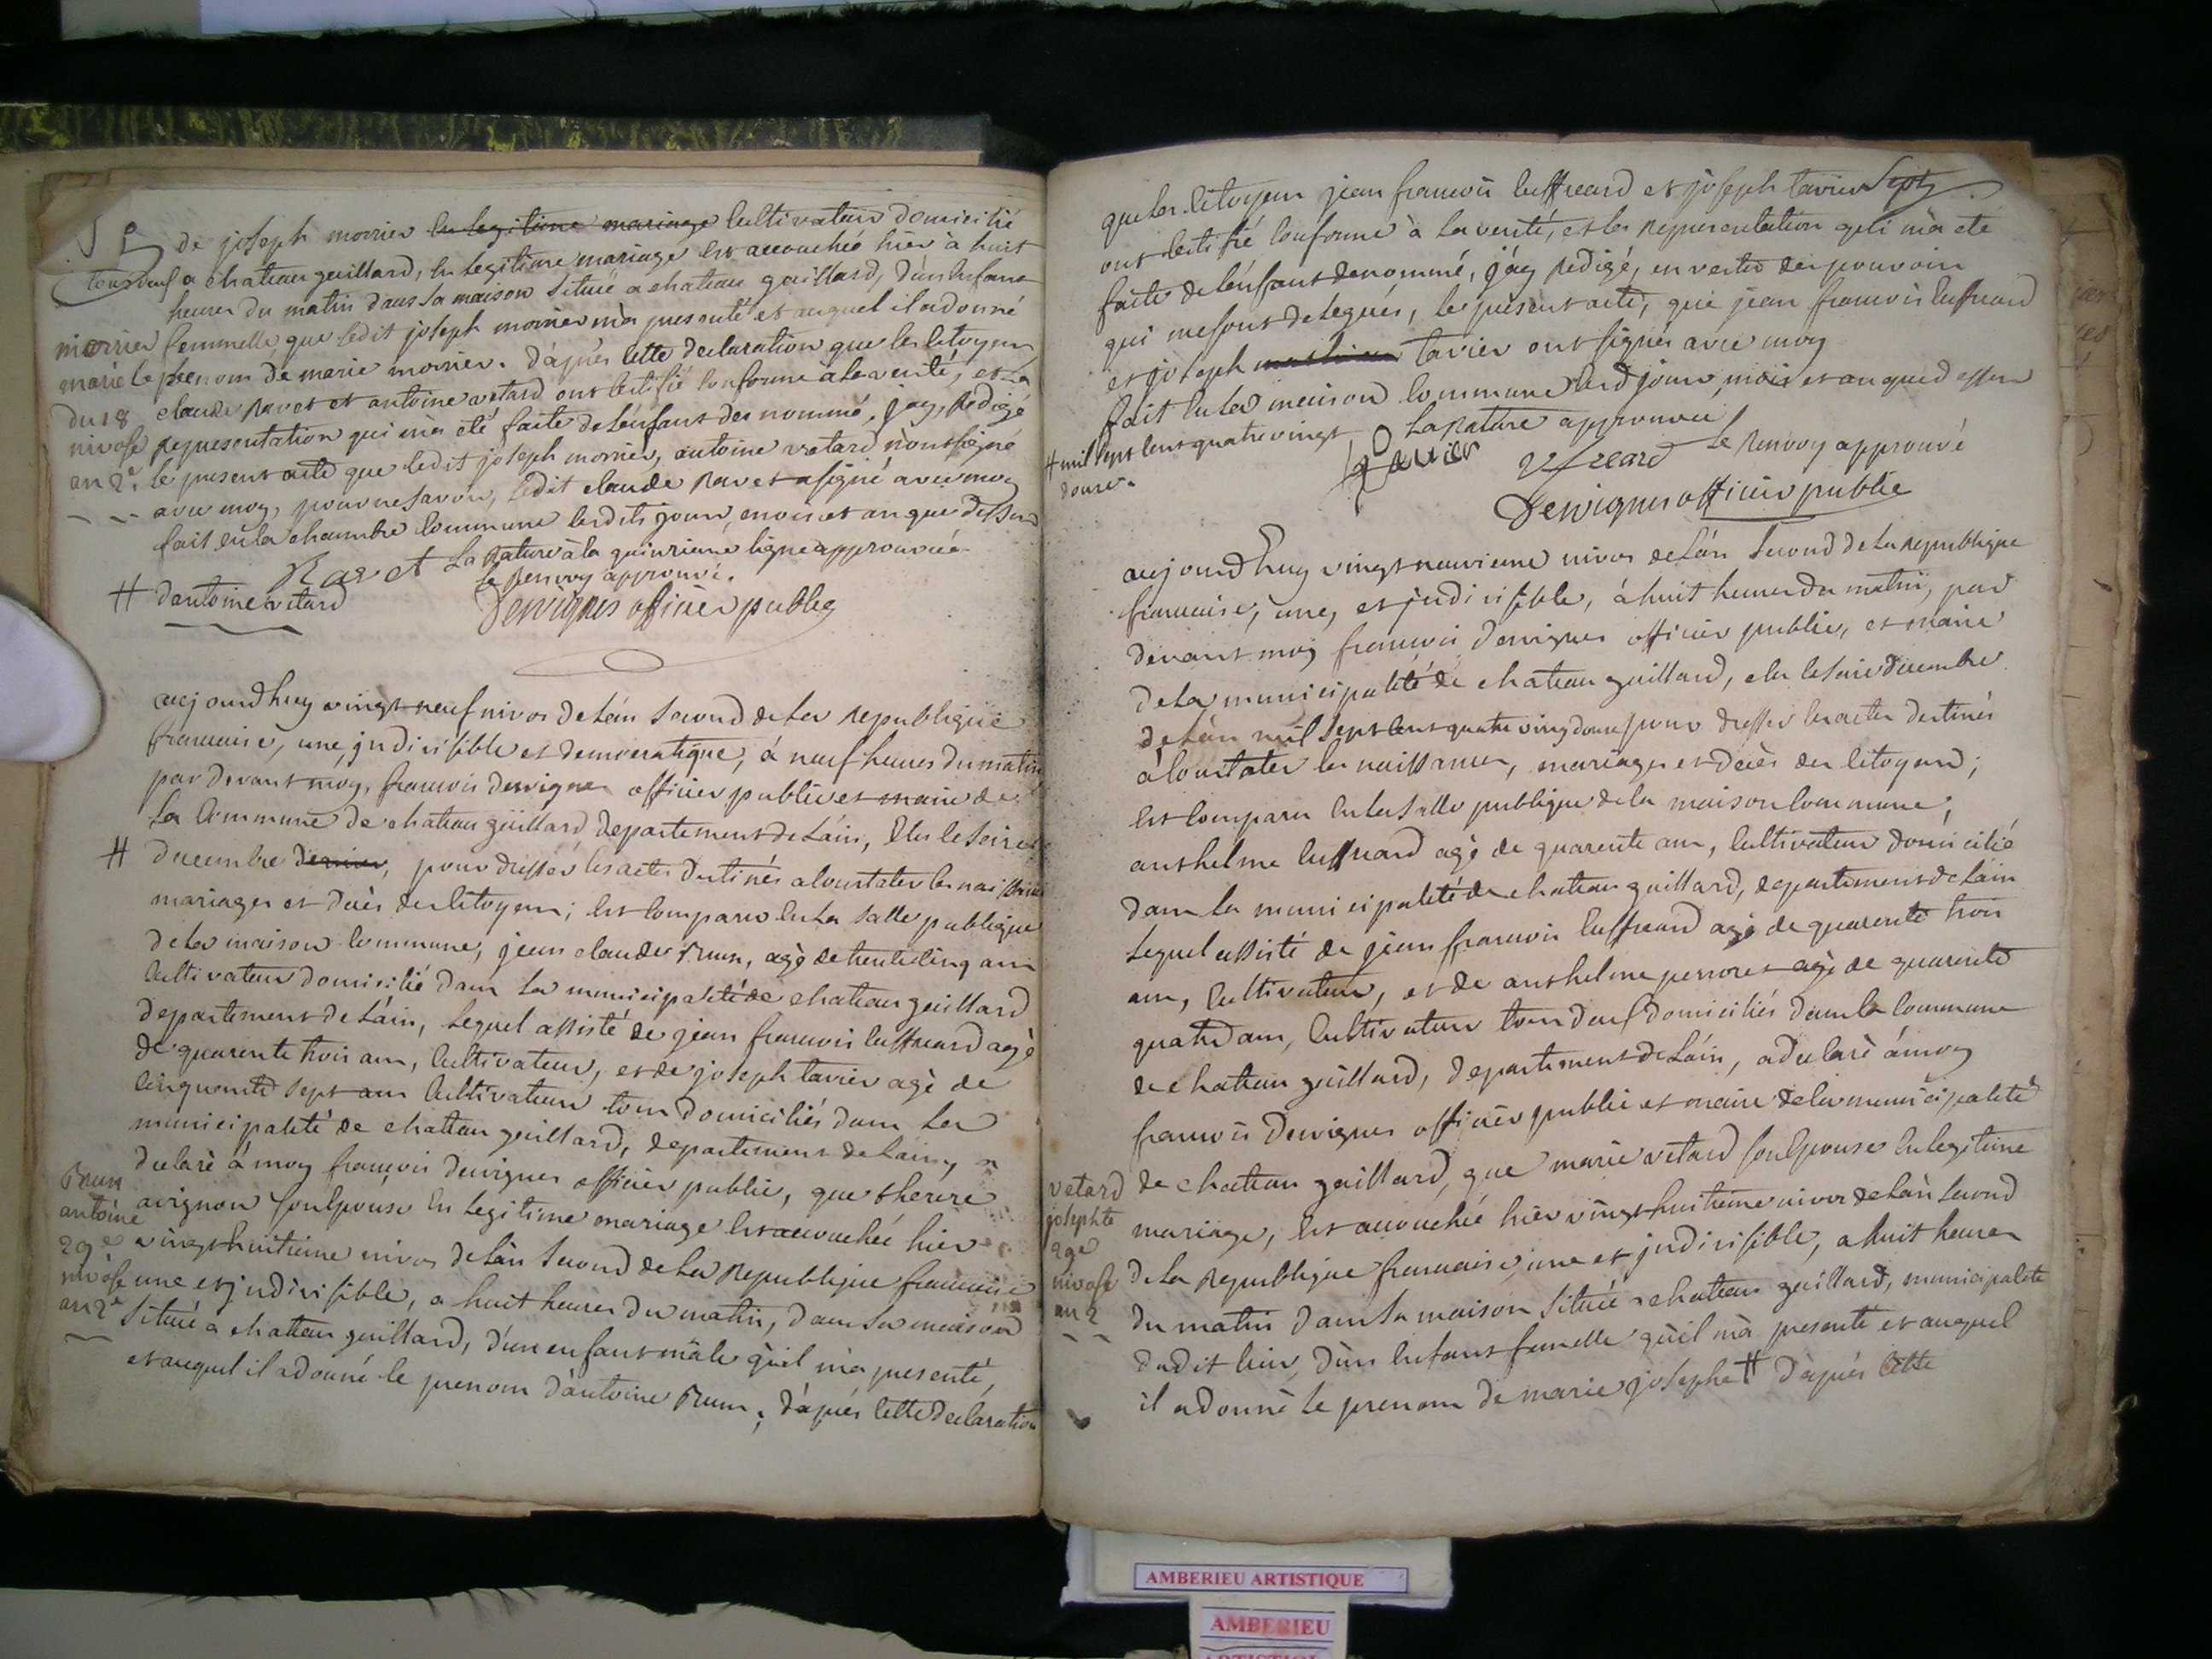 de joseph morrier en legitime mariage cultivateur domicilié
tous deux a chateau gaillard, en legitime mariage est accouchée hier à huit
heures du matin dans sa maison située a chateau gaillard, d'un enfant
femmelle que ledit joseph morrier m'a presenté et auquel il a donné
le prenom de marie morrier. d'après cette declaration que les citoyens
claude ravet et antoine vetard ont certifié conforme a la verité, et la
representation qui m'a été faite de l'enfant denommé, j'ay redigé
le present acte que ledit joseph morrier, antoine vetard n'ont signé
avec moy, pour ne savoir, ledit claude ravet a signé avec moy
fait en la chambre commune lesdits jour, mois et an que dessus
morrier
marie
du 28
nivose
an 2e
Ravet
la rature à la quinzieme ligne approuvée
le renvoy approuvé.
# d'antoine vetard
Dervignes officier public
aujourd'huy vingt neuf nivos de l'an second de la republique
francaise, une, indivisible et democratique, à neuf heures du matin
par devant moy, francois dervignes officier public et maire de
la commune de chateau gaillard departement de l'ain, elu le seize
# decembre dernier, pour dresser les actes destinés a constater les naissances
mariages et decès des citoyens; est comparu en la salle publique
de la maison commune, jean claude Brun, agé de trente cinq ans
cultivateur domicilié dans la municipalité de chateau gaillard
departement de l'ain, lequel assisté de jean francois cuffreard agé
de quarente trois ans, cultivateur, et de joseph tavier agé de
cinquante sept ans cultivateur tous domiciliés dans la
municipalité de chateau gaillard, departement de l'ain, a
declaré à moy francois dervignes officier public, que therese
avignon son epouse en legitime mariage est accouchée hier
vingt huitieme nivos de l'an second de la republique francaise
une et indivisible, a huit heures du matin, dans sa maison
située a chateau gaillard, d'un enfant mâle qu'il m'a presenté,
et auquel il a donné le prenom d'antoine Brun; d'après cette declaration
Brun
antoine
29e
nivose
an 2e
que les citoyens jean francois cuffreard et joseph tavier
ont certifié conforme à la verité, et la representation qui m'a eté
faite de l'enfant denommé, j'ay redigé, en vertu des pouvoirs
qui me sont delegués, le present acte, que jean francois cuffreard
et joseph tavier ont signés avec moy
fait en la maison commune lesd jour, mois et an que dessus
# mil sept cent quatre vingt
douze.
la rature approuvée
tavier
le renvoy approuvé
Dervignes officier public
aujourd'huy vingt neuvieme nivos de l'an second de la republique
francaise, une, et indivisible, à huit heures du matin, par
devant moy francois dervignes officier public, et maire
de la municipalité de chateau gaillard, elu le seize decembre
de l'an mil sept cent quatre ving douze pour dresser les actes destinés
à constater les naissances, mariages et decès des citoyens;
est comparu en la salle publique de la maison commune,
anthelme cuffreard agé de quarente ans, cultivateur domicilié
dans la municipalité de chateau gaillard, departement de l'ain
lequel assisté de jean francois cuffreard agé de quarente trois
ans, cultivateur, et de anthelme perroret agé de quarente
quatre ans, cultivateur tous deux domiciliés dans la commune
de chateau gaillard, departement de l'ain, a declaré à moy
francois dervignes officier public et maire de la municipalité
de chateau gaillard, que marie vetard son epouse en legitime
mariage, est accouchée hier vingt huitieme nivos de l'an second
de la republique francaise, une et indivisible, a huit heures
du matin dans sa maison située a chateau gaillard, municipalité
dudit lieu, d'un enfant femelle qu'il m'a presenté et auquel
il a donné le prenom de marie josephe # d'après cette
vetard
josephte
29e
nivose
an 2
AMBERIEU ARTISTIQUE
AMBERIEU
ARTISTIQUE